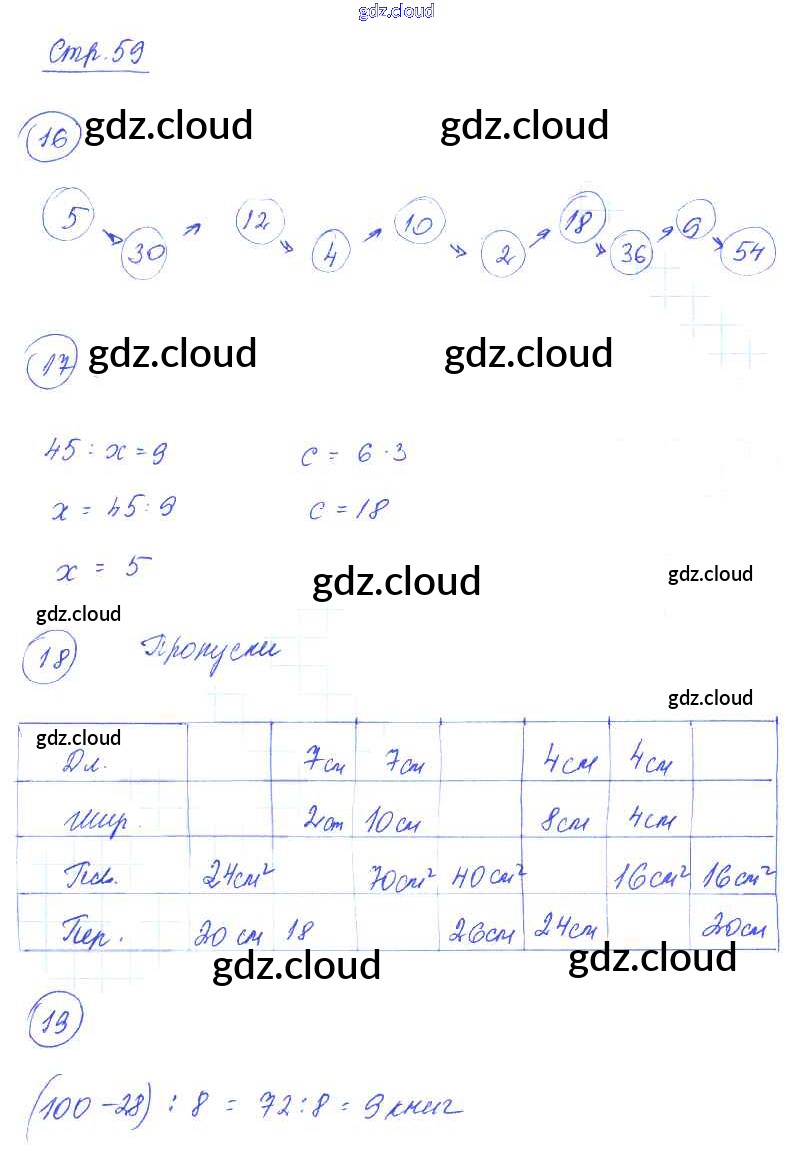 gdz.cloud
Стр. 59
16 gdz.cloud gdz.cloud
5 12 10 18 9
30 4 2 36 54
17 gdz.cloud gdz.cloud
45 : x = 9 c = 6 · 3
x = 45 : 9 c = 18
x = 5 gdz.cloud gdz.cloud
gdz.cloud
18 Пропуски
gdz.cloud
gdz.cloud
Дл. 7см 7см 4см 4см
Шир. 2см 10см 8см 4см
Пл. 24см² 70см² 40см² 16см² 16см²
Пер. 20 см 18 26см 24см 20см
gdz.cloud gdz.cloud
19
(100 - 28) : 8 = 72 : 8 = 9 книг